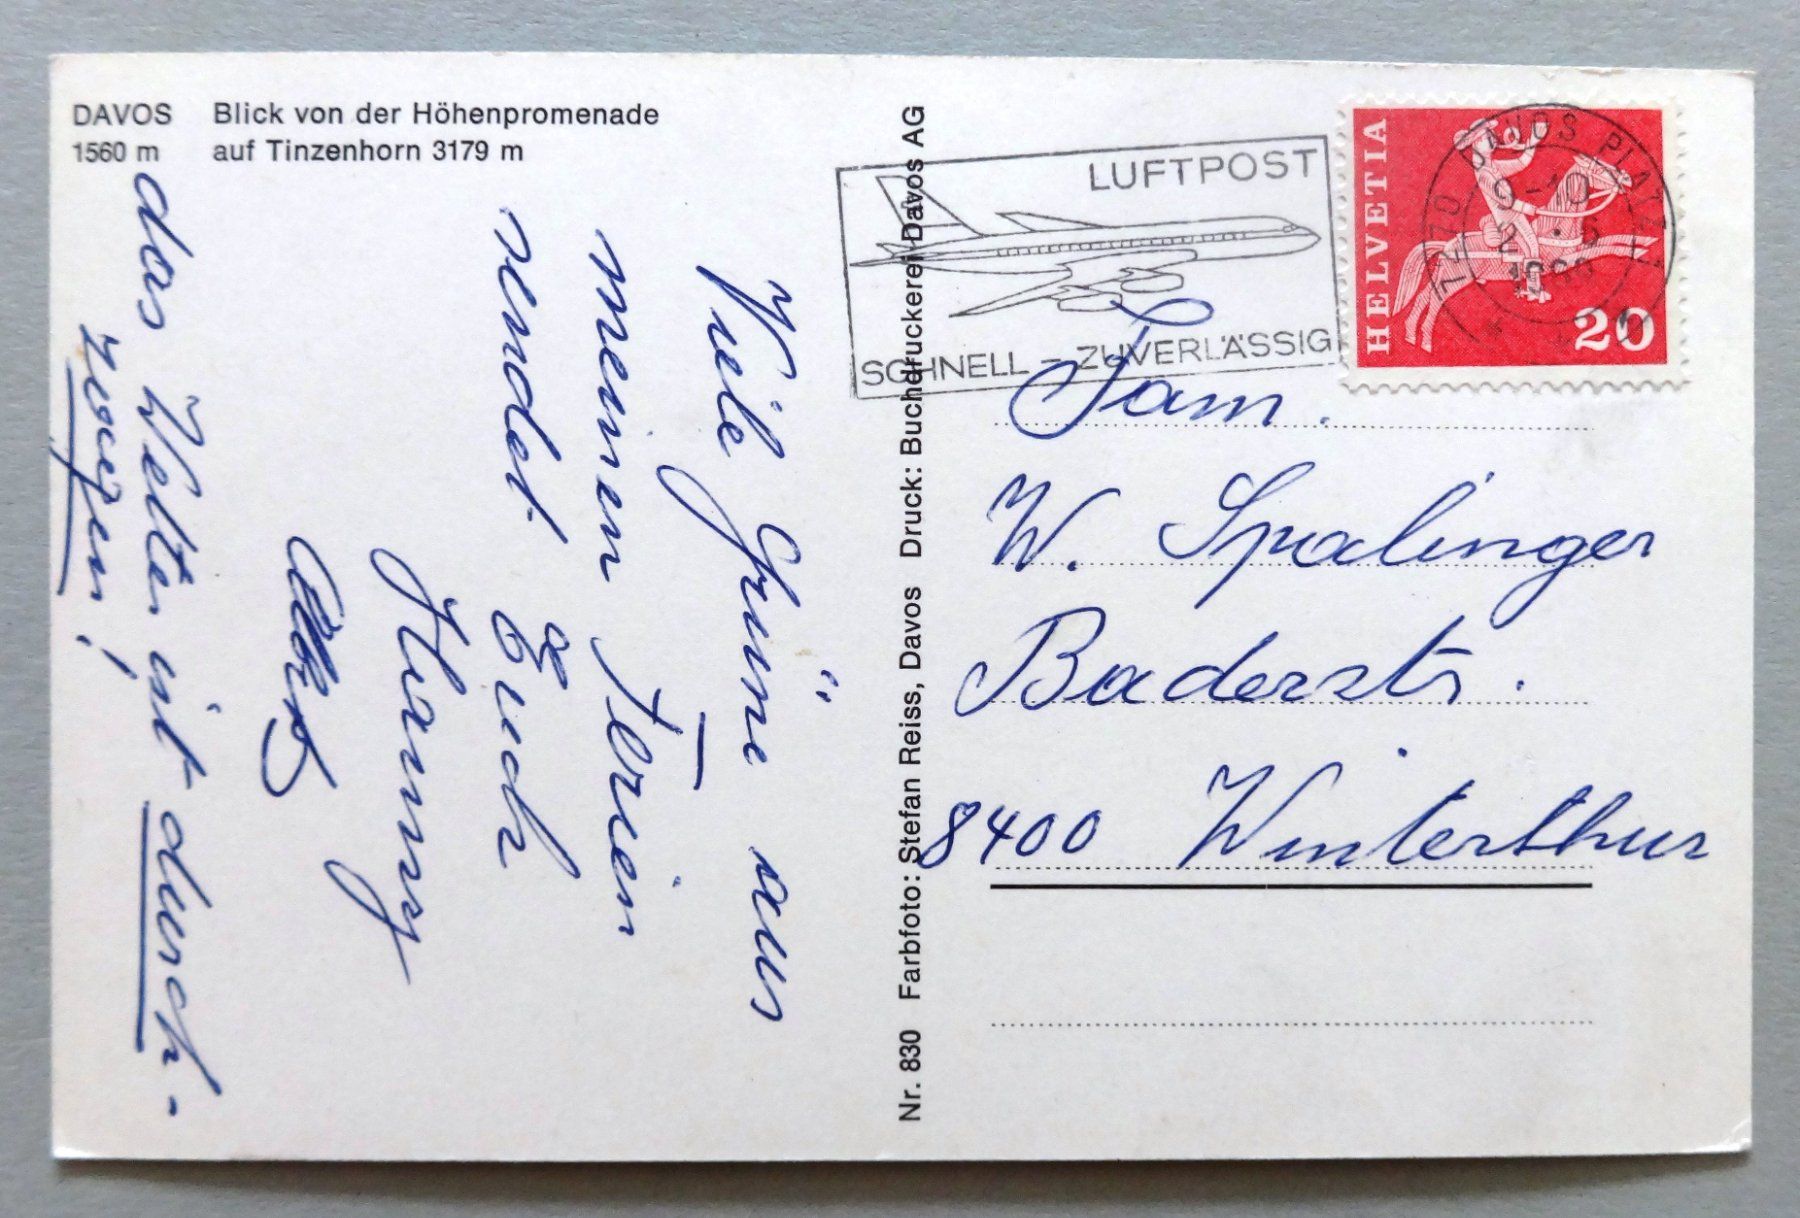 DAVOS Blick von der Höhenpromenade
1560 m auf Tinzenhorn 3179 m
Viele Grüsse aus
meinen Ferien
sendet Euch
Hanny
das Wetter ist durch-
zogen!
Nr. 830 Farbfoto: Stefan Reiss, Davos Druck: Buchdruckerei Davos AG
LUFTPOST
SCHNELL - ZUVERLÄSSIG
HELVETIA
20
7270 DAVOS PLATZ 1
9-10
Fam.
W. Spalinger
Baderstr.
8400 Winterthur